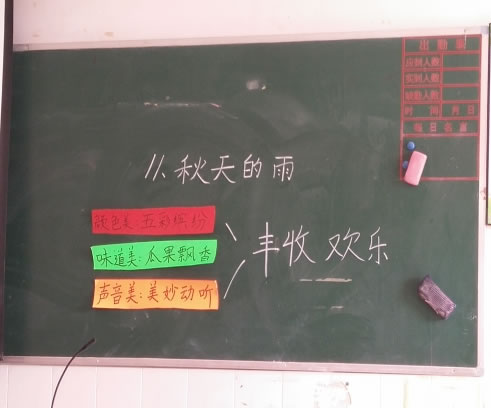 出勤栏
应到人数
实到人数
缺勤人数
时 间 月 日
每日名言
11、秋天的雨
颜色美:五彩缤纷
味道美:瓜果飘香
声音美:美妙动听
丰收 欢乐